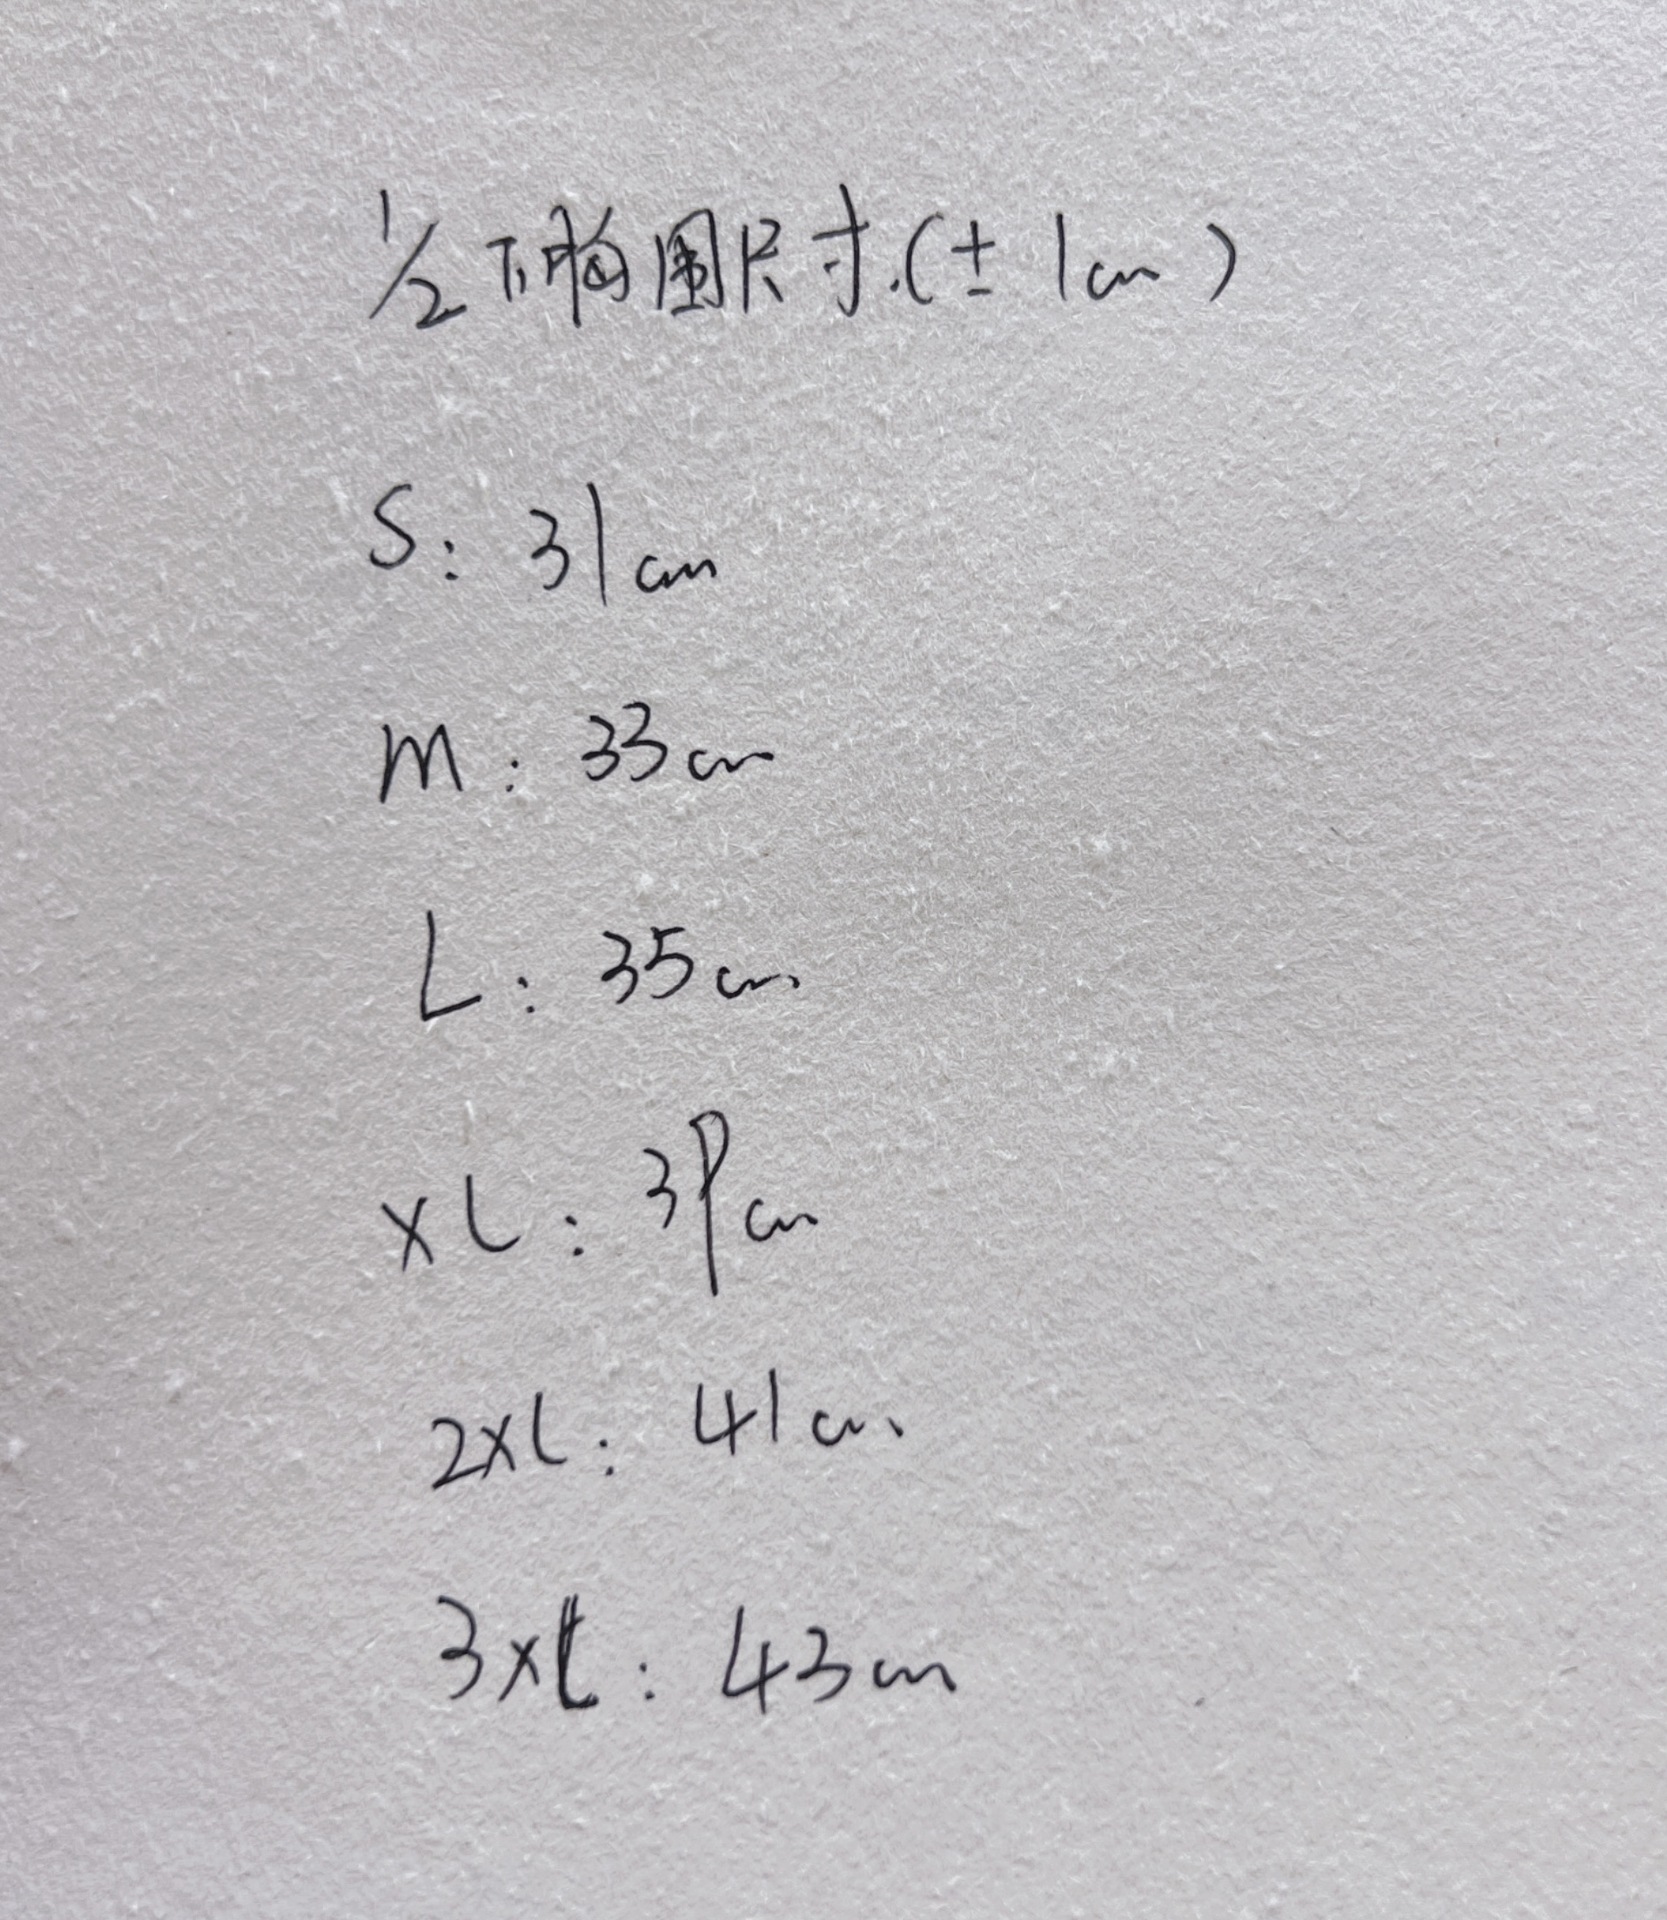 1/2下胸围尺寸.(±1cm)
S: 31cm
M: 33cm
L: 35cm
XL: 39cm
2XL: 41cm
3XL: 43cm